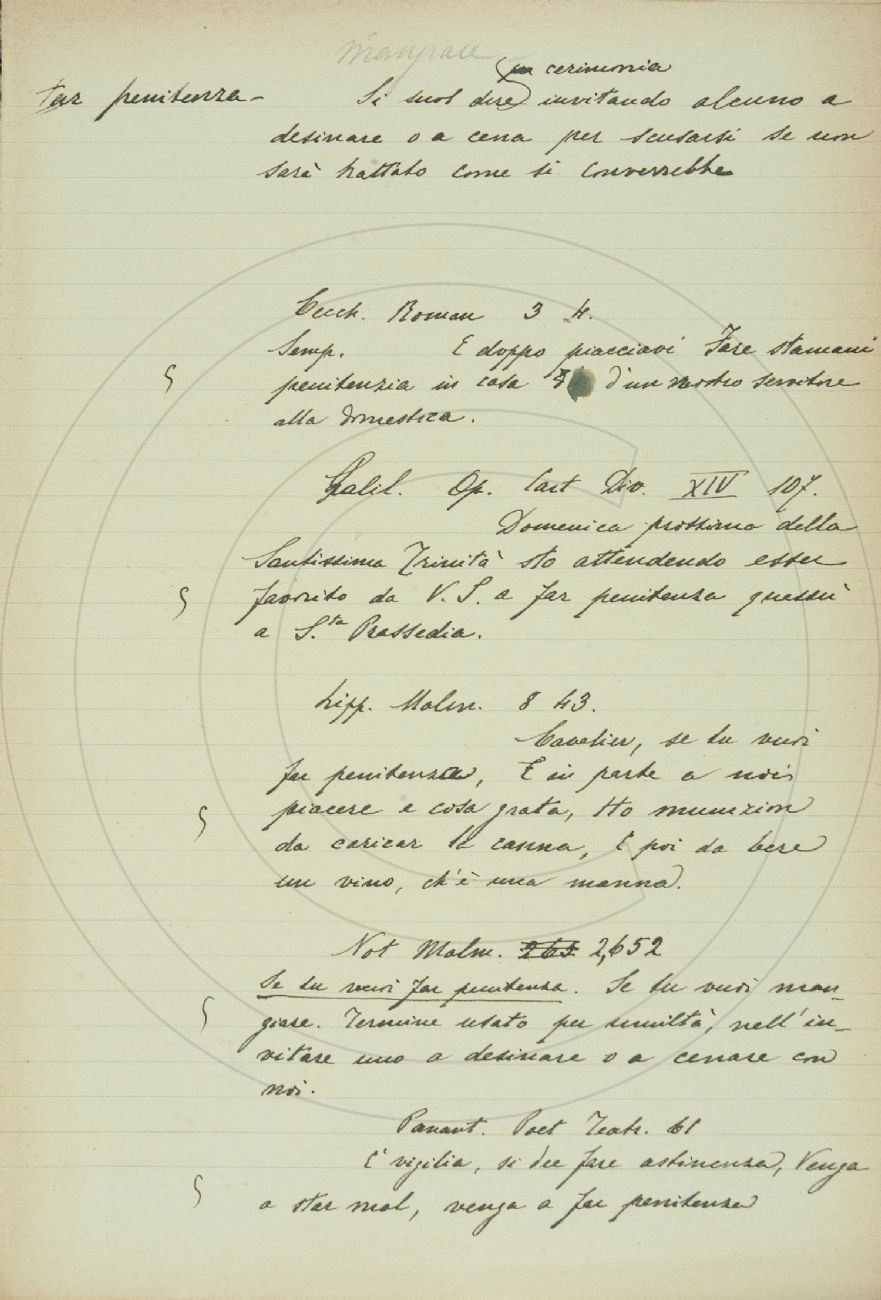 Mangiare
in cerimonia
Far penitenza - Si suol dire invitando alcuno a
desinare o a cena per scusarsi se non
sarà trattato come si converrebbe
Cecch. Roman 3 4.
Semp. E doppo piacciavi fare stamani
penitenzia in casa d'un vostro servitore
alla domestica.
Galil. Op. Cart Div. XIV 107.
Domenica prossima della
Santissima Trinità sto attendendo esser
favorito da V. S. a far penitenza quessù
a S.ta Prassedia.
Lipp. Malm. 8 43.
Cavalier, se tu vuoi
far penitenza, E in parte a noi
piacere e cosa grata, Ho munizion
da caricar la canna, E poi da bere
un vino, ch'è una manna.
Not Malm. 265 2,652
Se tu vuoi far penitenza. Se tu vuoi man-
giare. Termine usato per umiltà, nell'in-
vitare uno a desinare o a cenare con
noi.
Panant. Poet Teatr. 61
È vigilia, si dee fare astinenza, Venga
a star mal, venga a far penitenza